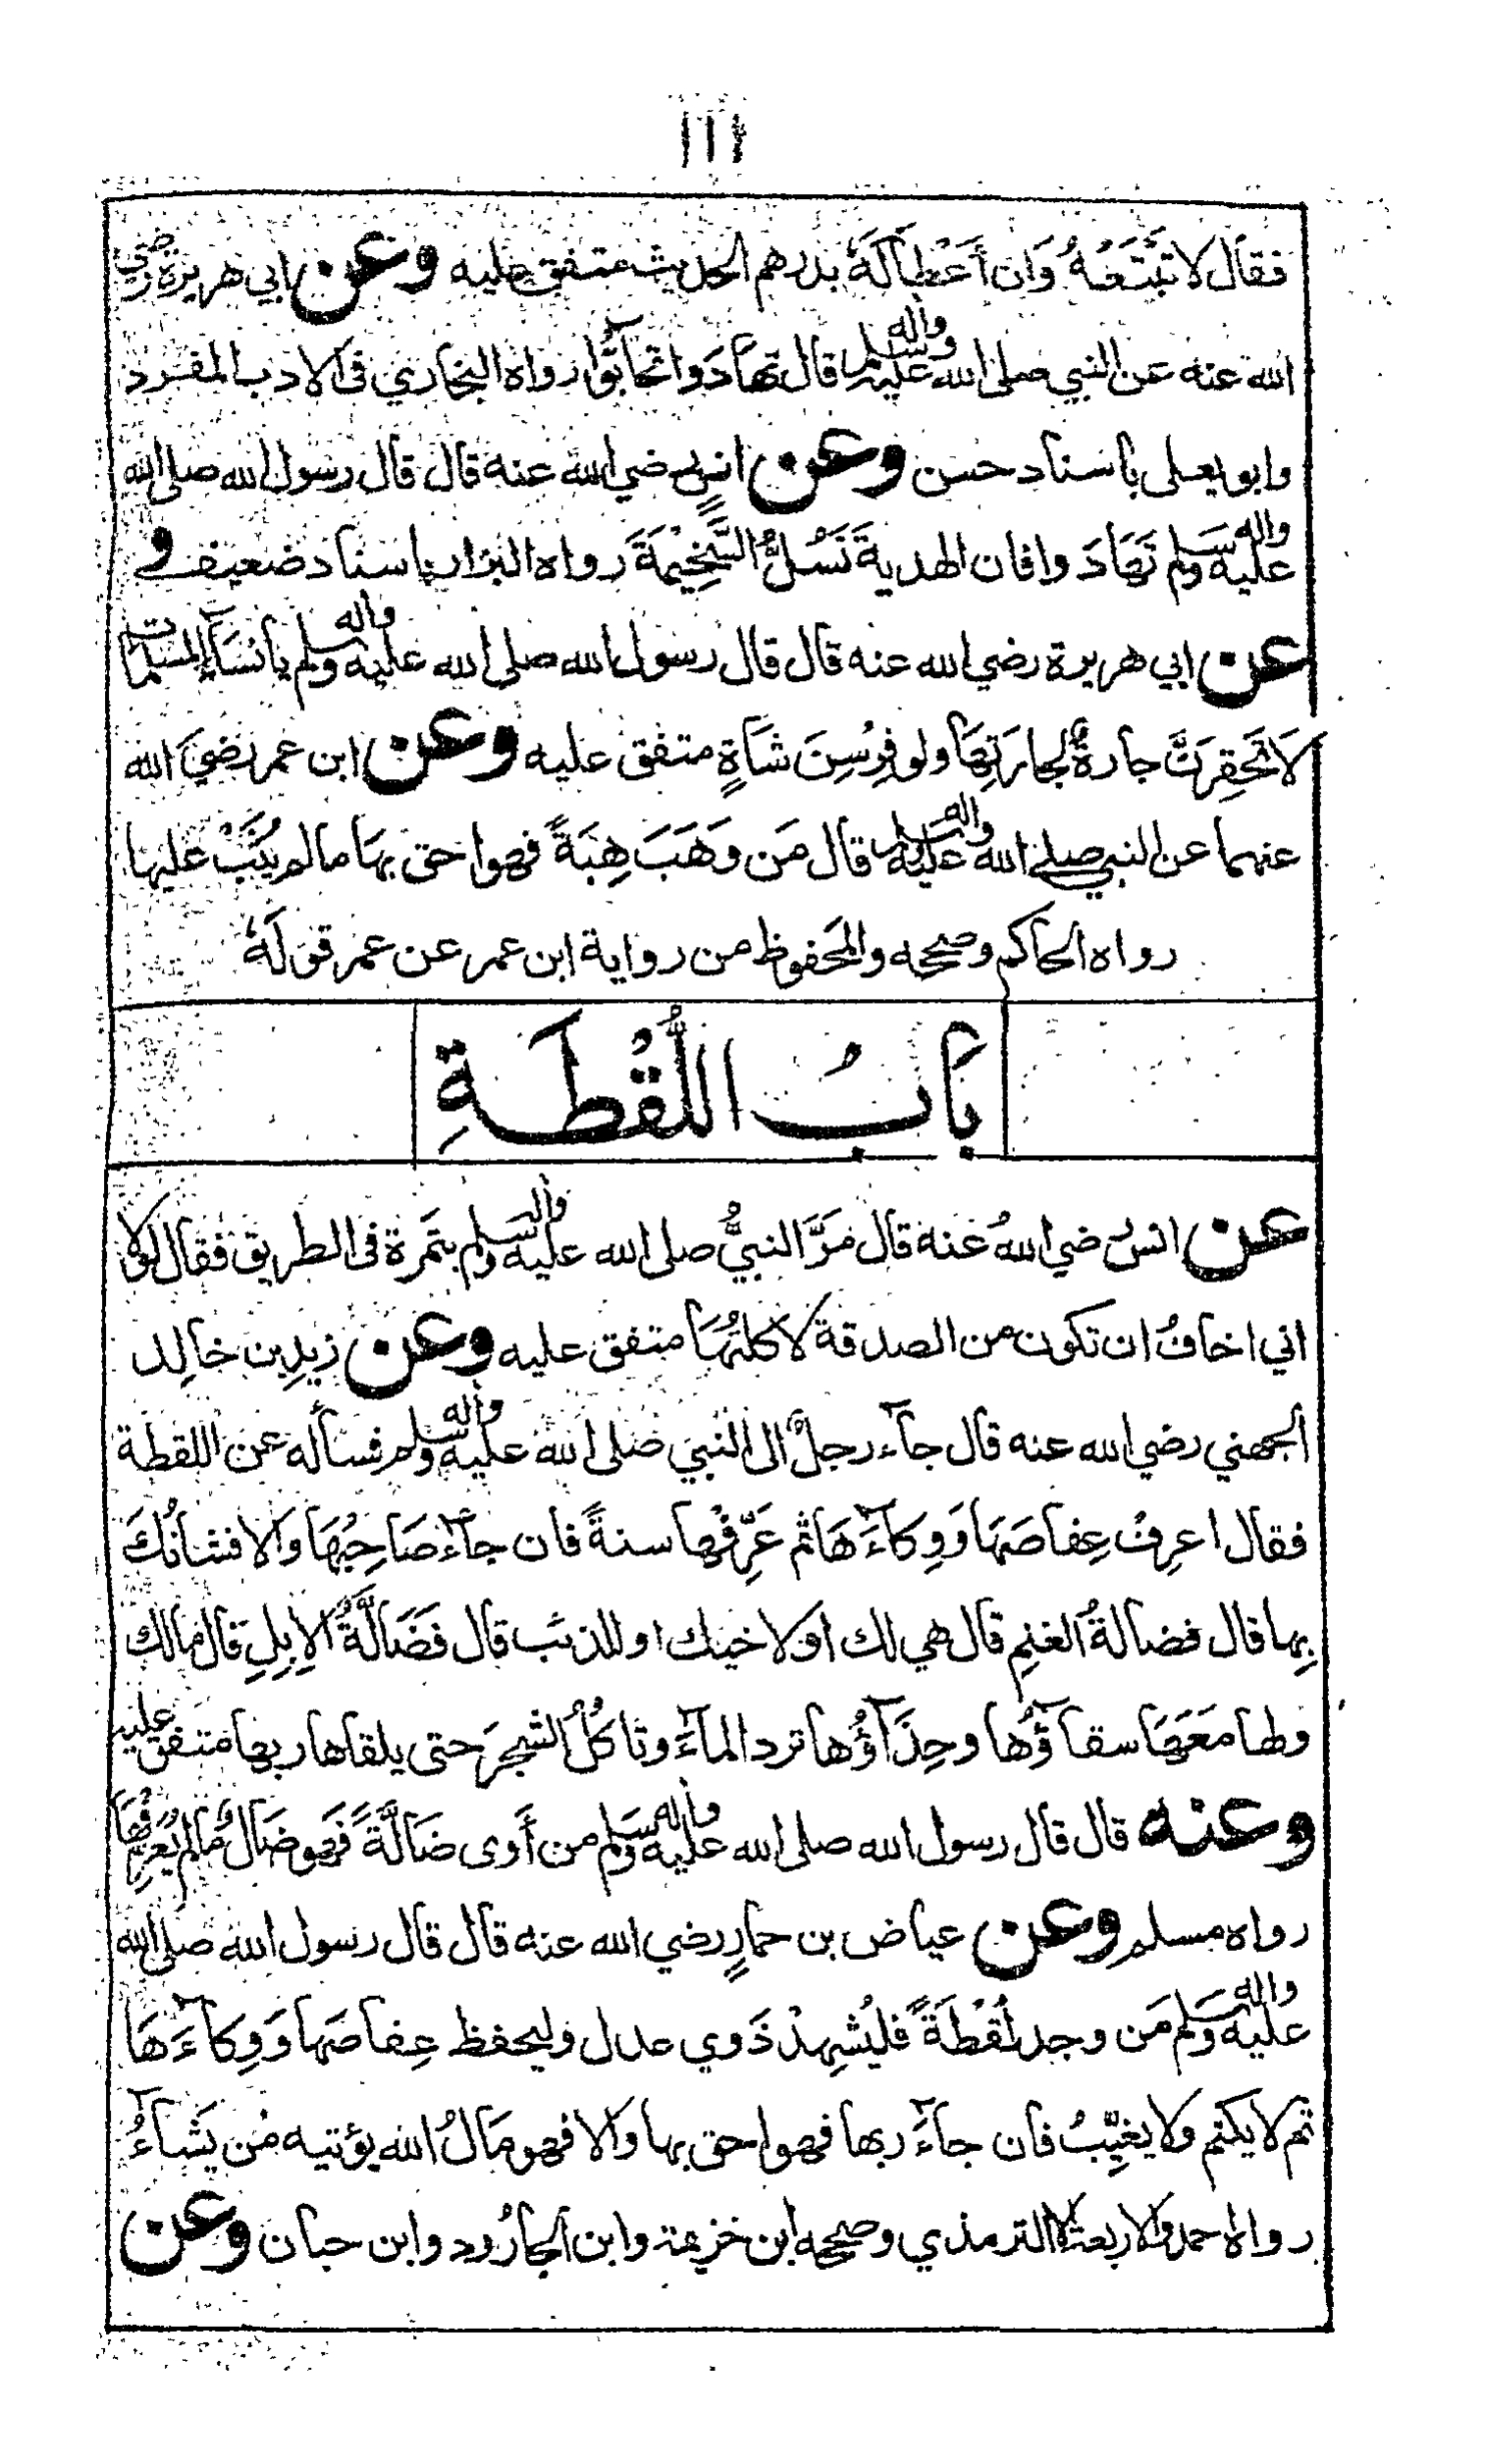 ١١١
فقال لا تَبْتَعْهُ وَان أَعْطَاكَهُ بدرهم الحديث متفق عليه وعن ابي هريرة رضي
الله عنه عن النبي صلى الله عليه واله وسلم قال تهادَوا تحابُّوا رواه البخاري في الادب المفرد
وابو يعلى باسناد حسن وعن انسٍ رضي الله عنه قال قال رسول الله صلى الله
عليه واله وسلم تَهَادَوا فان الهدية تَسُلُّ السَّخِيْمَةَ رواه البزار باسناد ضعيف و
عن ابي هريرة رضي الله عنه قال قال رسول الله صلى الله عليه واله وسلم يا نسآءَ المسلمات
لَا تَحقِرَنَّ جارةٌ لجارَتِهَا ولو فِرْسِنَ شَاةٍ متفق عليه وعن ابن عمر رضيَ الله
عنهما عن النبي صلى الله عليه واله وسلم قال مَن وَهَبَ هِبَةً فهو احق بهَا ما لم يُثَبْ عليها
رواه الحاكم وصححه والمَحفوظ من رواية ابن عمر عن عمر قولَهُ
بَابُ اللُّقْطَةِ
عن انس رضي اللهُ عَنه قال مَرَّ النبيُّ صلى الله عليه واله وسلم بتَمرة في الطريق فقال لولا
اني اخافُ ان تكون من الصدقة لاكلتُهَا متفق عليه وعن زيدِ بن خالِد
الجهني رضي الله عنه قال جآء رجلٌ الى النبي صلى الله عليه واله وسلم فسأله عن اللقطة
فقال اعرِفْ عِفاصَهَا وَوِكآءَهَا ثم عَرِّفْها سنةً فان جآءَ صَاحِبُهَا والا فشانُكَ
بِها قال فضالةُ الغنمِ قال هي لك او لاخيك او للذئب قال فَضَالَّةُ الاِبِلِ قال مالك
ولها مَعَهَا سقآؤُها وحِذَآؤُها ترد المآءَ وتاكُلُ الشجَرَ حتى يلقاها ربها متفق عليه
وعنه قال قال رسول الله صلى الله عليه واله وسلم من أوى ضَالَّةً فَهو ضَالٌّ ما لم يُعَرِّفْهَا
رواه مسلم وعن عياض بن حمارٍ رضي الله عنه قال قال رسول الله صلى الله
عليه واله وسلم مَن وجد لُقْطَةً فليُشهِدْ ذَوي عدل وليحفظ عِفاصَها وَوِكآءَهَا
ثم لا يكتم ولا يغيِّبُ فان جآءَ ربها فهو احق بها والا فهو مَالُ الله يؤتيه مَن يَشآءُ
رواه احمد والاربعة الا الترمذي وصححه ابن خزيمة وابن الجارُود وابن حبان وعن